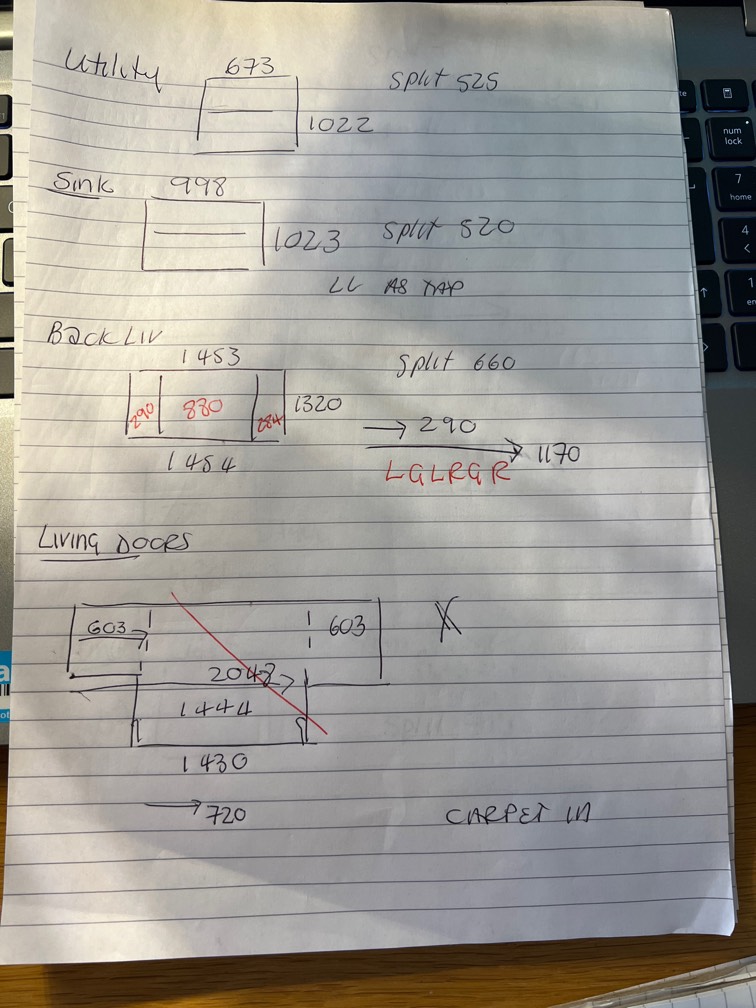 Utility 673 Split 525
1022
Sink 998
1023 Split 520
LL AS TAP
Back LIV 1453 Split 660
290 880 284 1320
→ 290
→ 1170
1454 LGLRGR
LIVING DOORS
603 603 X
2048
1444
1430
→ 720 CARPET IN
num lock
7 home
4
1